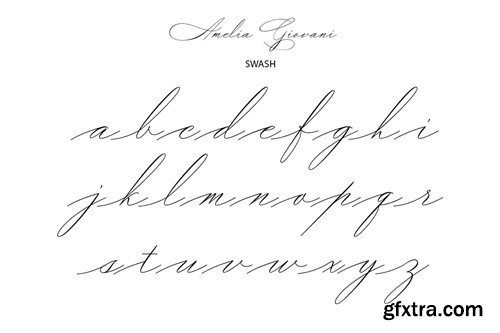 Amelia Giovani
SWASH
a b c d e f g h i
j k l m n o p q r
s t u v w x y z
gfxtra.com